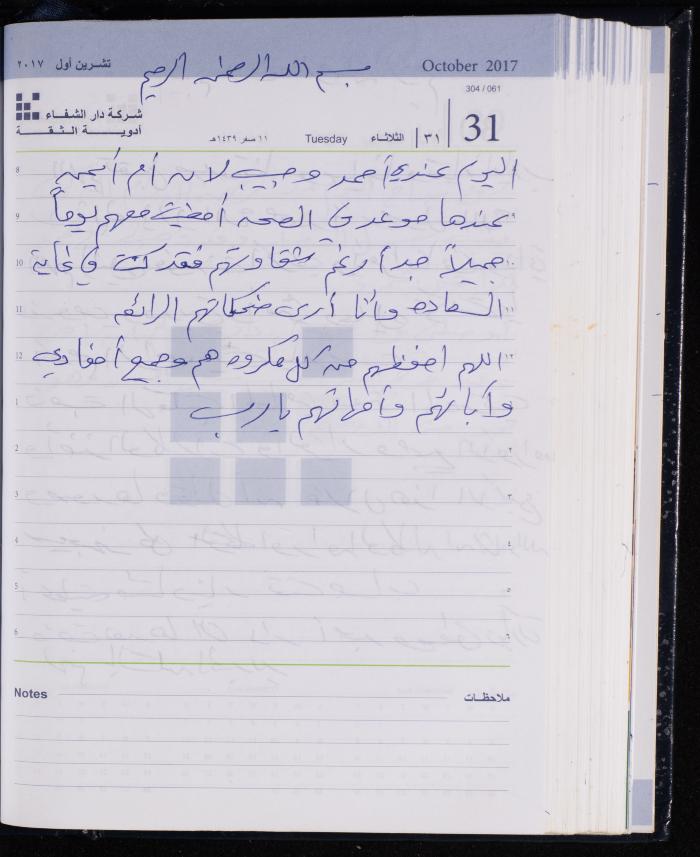 تشرين أول ٢٠١٧
October 2017
بسم الله الرحمن الرحيم
304 / 061
شركة دار الشفاء
أدوية الثقة
١١ صفر ١٤٣٩هـ
Tuesday
الثلاثاء
٣١
31
اليوم عندي أحمد وحبيب لان أم
عندها موعد في الصحه أمضيت معهم يوماً
جميلاً جداً رغم شقاوتهم فقد كنت في غاية
السعاده وأنا أرى ضحكاتهم الرائعه
اللهم احفظهم من كل مكروه هم وجميع أحفادي
وآبائهم وأمهاتهم يارب
Notes
ملاحظات